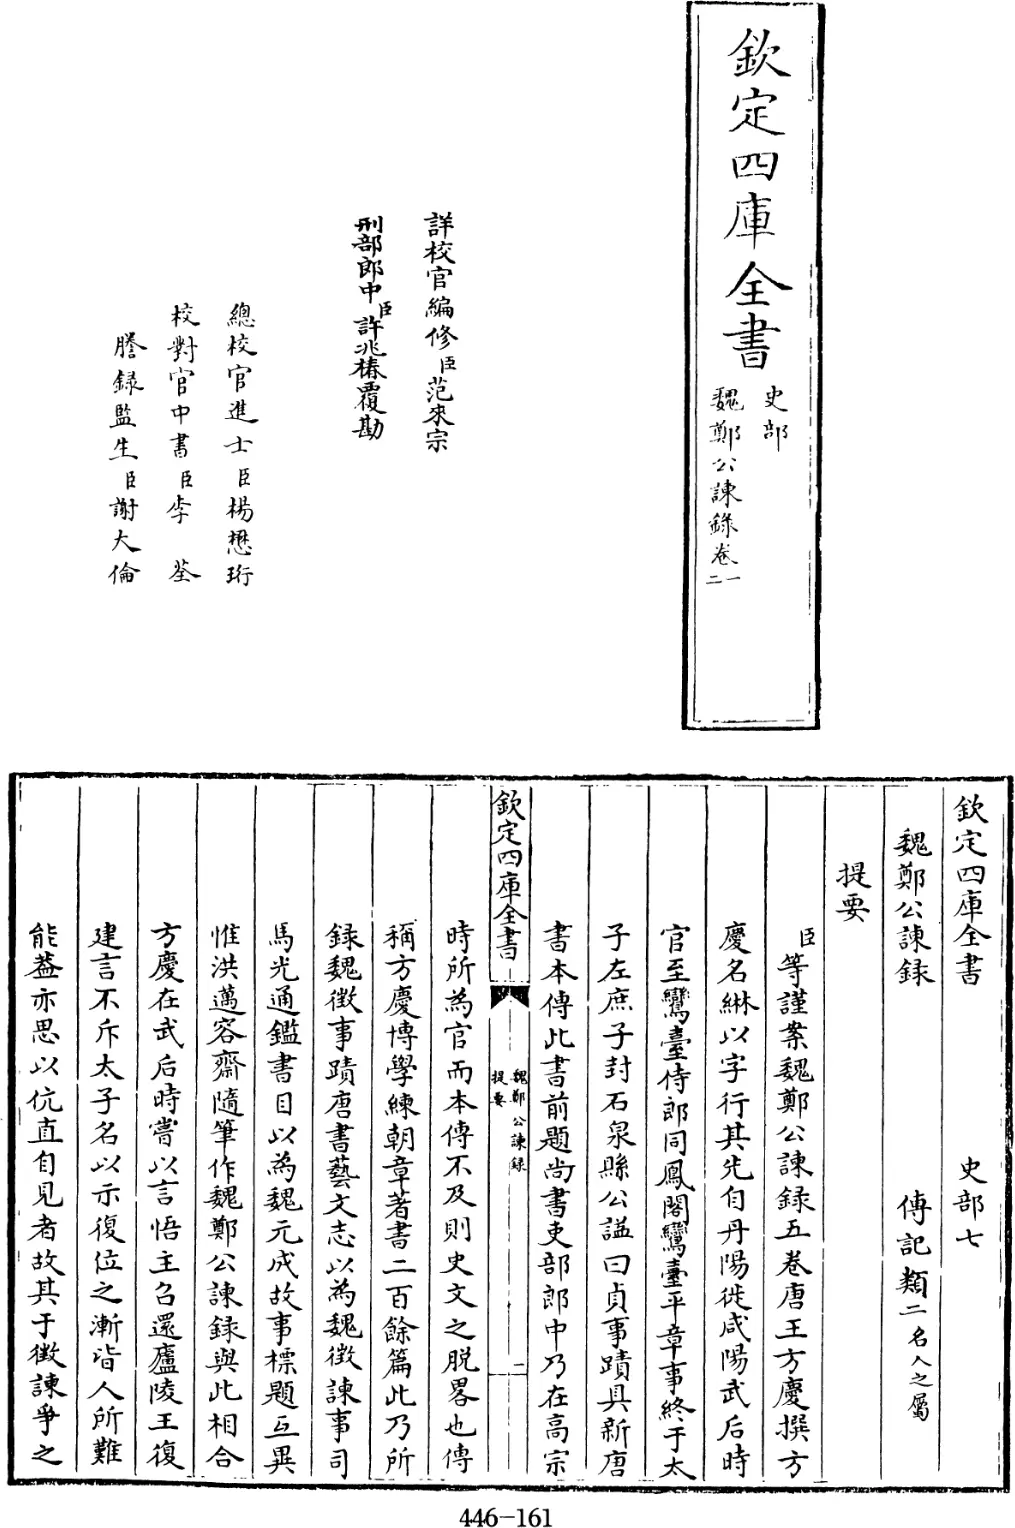 欽定四庫全書
史部
魏鄭公諫錄卷一二
詳校官編修臣范來宗
刑部郎中臣許兆椿覆勘
總校官進士臣楊懋珩
校對官中書臣李荃
謄録監生臣謝大倫
欽定四庫全書 史部七
魏鄭公諫録 傳記類二名人之屬
提要
臣等謹案魏鄭公諫録五卷唐王方慶撰方
慶名綝以字行其先自丹陽徙咸陽武后時
官至鸞臺侍郎同鳳閣鸞臺平章事終于太
子左庶子封石泉縣公諡曰貞事蹟具新唐
書本傳此書前題尚書吏部郎中乃在高宗
欽定四庫全書
魏鄭公諫録
提要
二
時所為官而本傳不及則史文之脱畧也傳
稱方慶博學練朝章著書二百餘篇此乃所
録魏徵事蹟唐書藝文志以為魏徵諫事司
馬光通鑑書目以為魏元成故事標題互異
惟洪邁容齋隨筆作魏鄭公諫録與此相合
方慶在武后時嘗以言悟主召還廬陵王復
建言不斥太子名以示復位之漸皆人所難
能葢亦思以伉直自見者故其于徵諫爭之
446-161